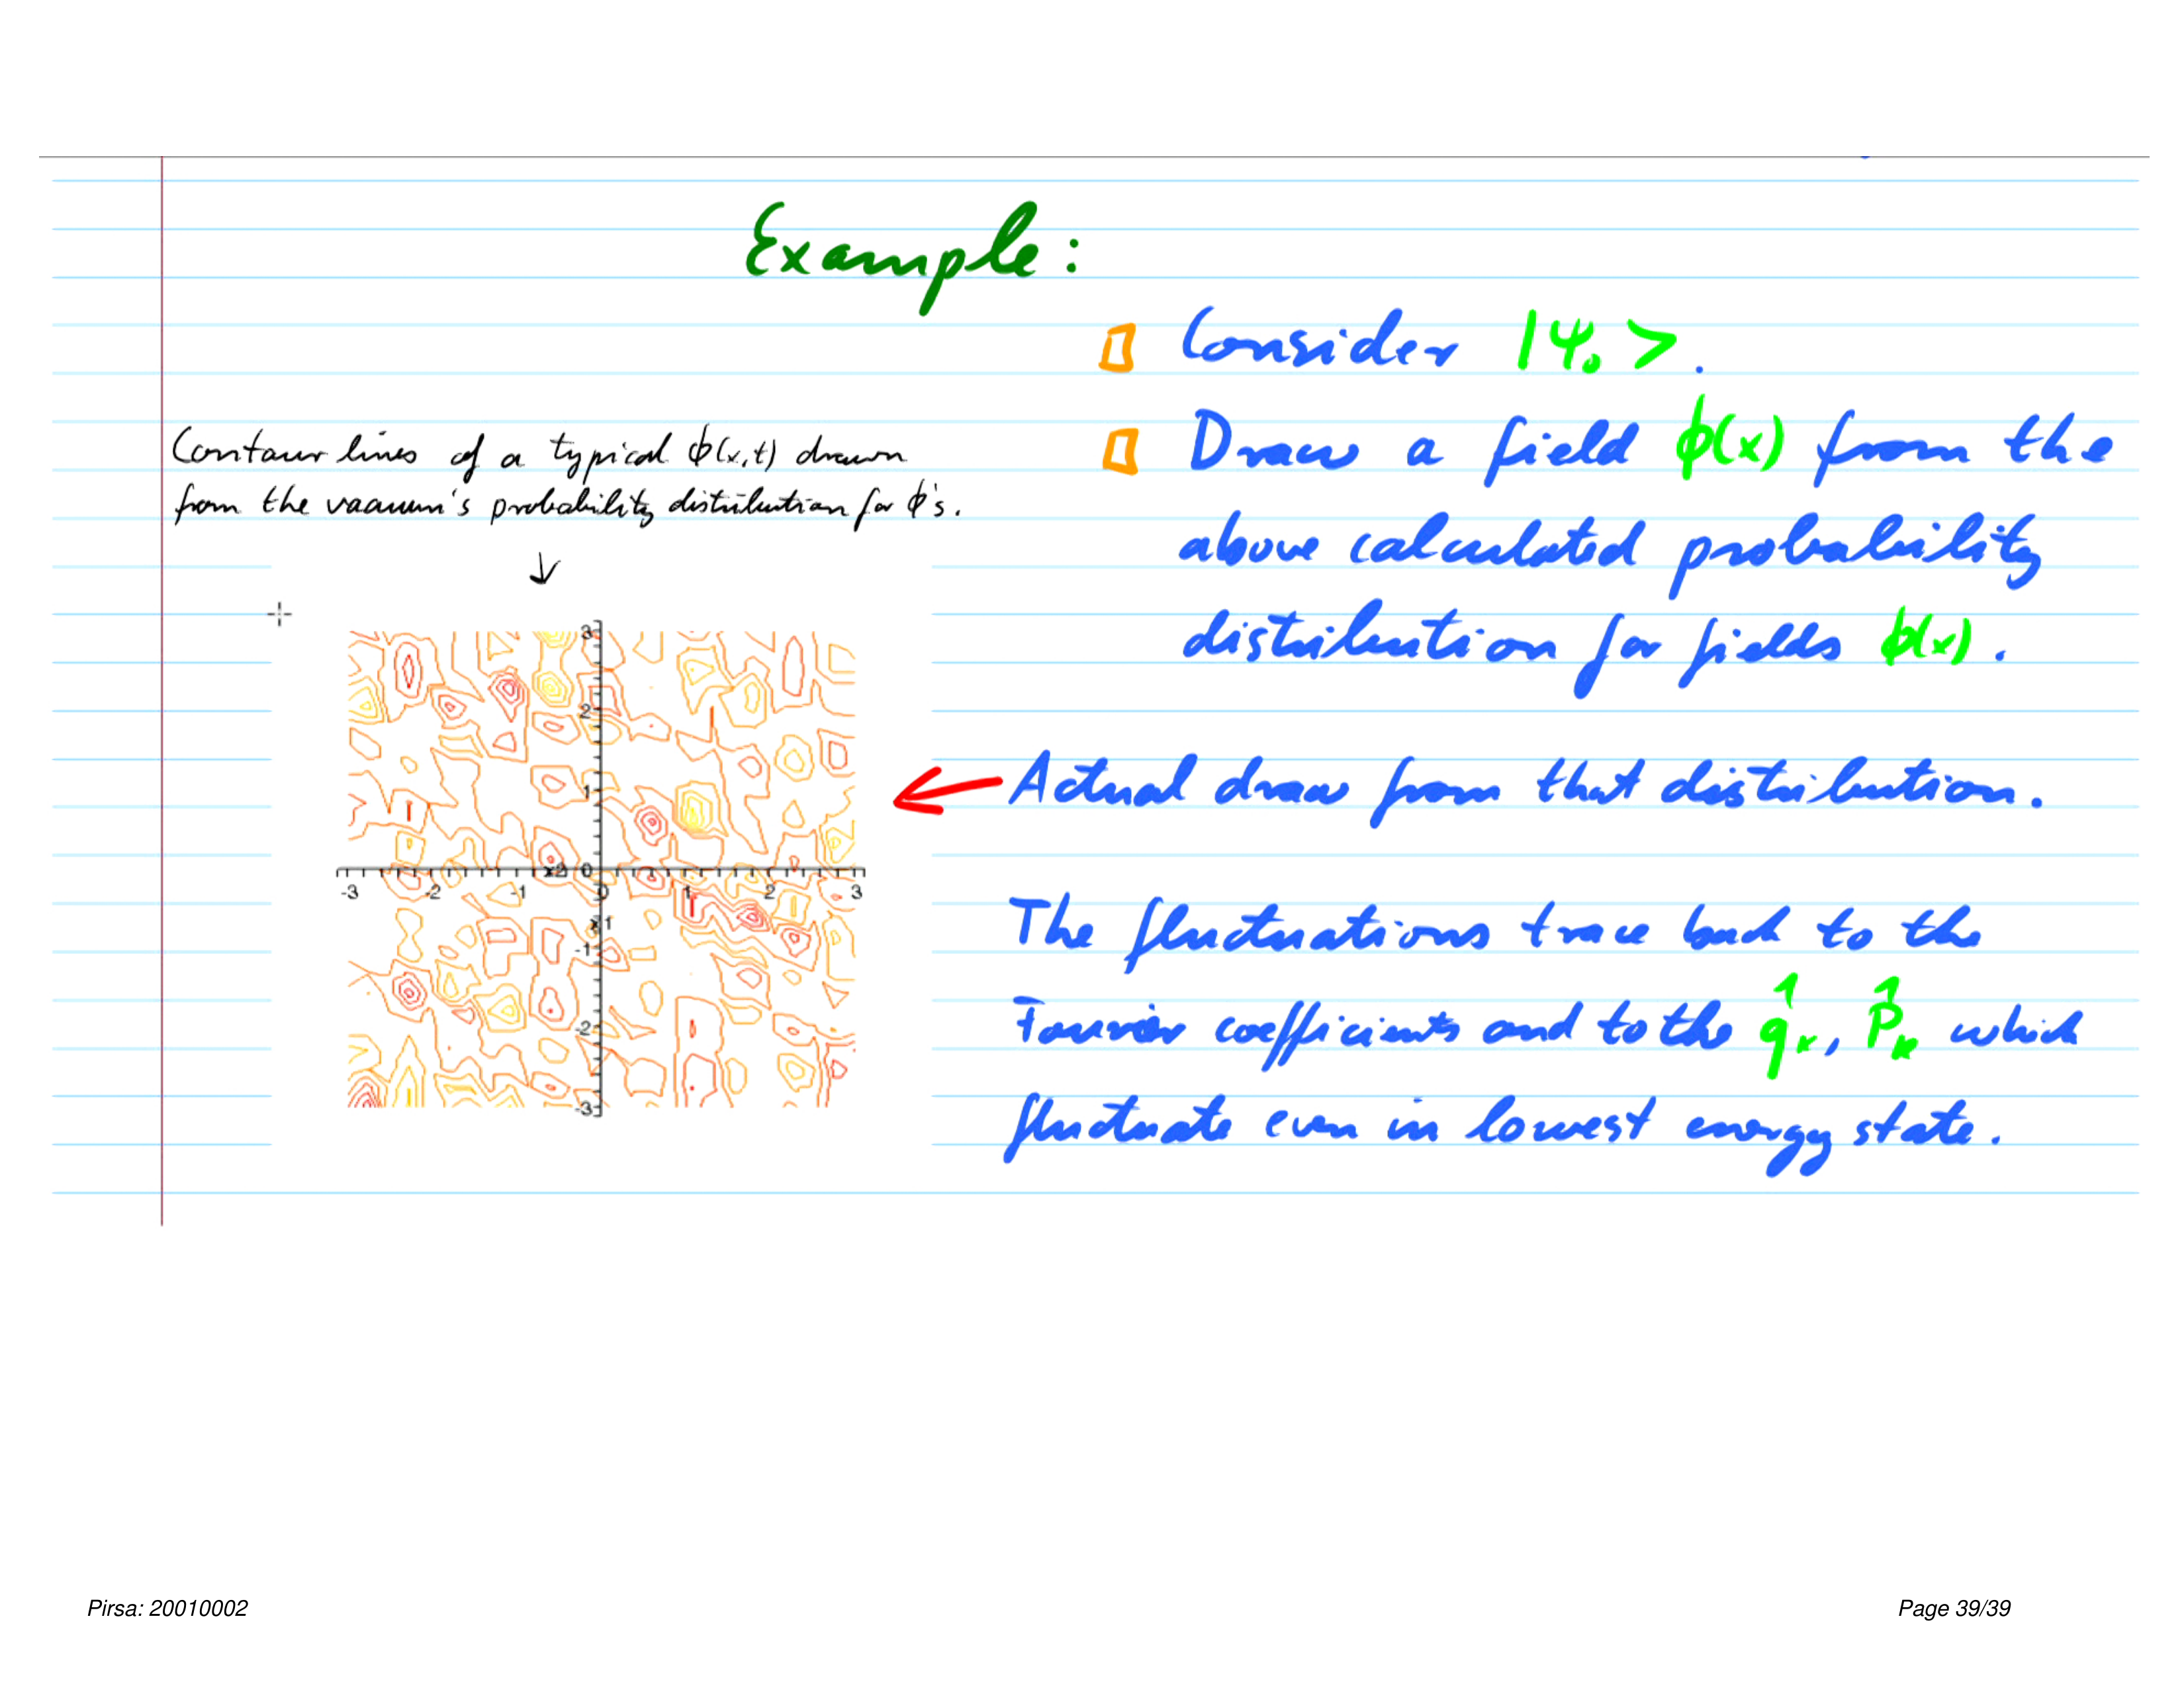 Example:
Consider |Ψ₀>.
Draw a field ϕ(x) from the
above calculated probability
distribution for fields ϕ(x).
Contour lines of a typical ϕ(x,t) drawn
from the vacuum's probability distribution for ϕ's.
3
2
1
0
-3 -2 -1 x2 0 1 2 3
x1
-1
-2
-3
Actual draw from that distribution.
The fluctuations trace back to the
Fourier coefficients and to the q̂ₖ, p̂ₖ which
fluctuate even in lowest energy state.
Pirsa: 20010002
Page 39/39